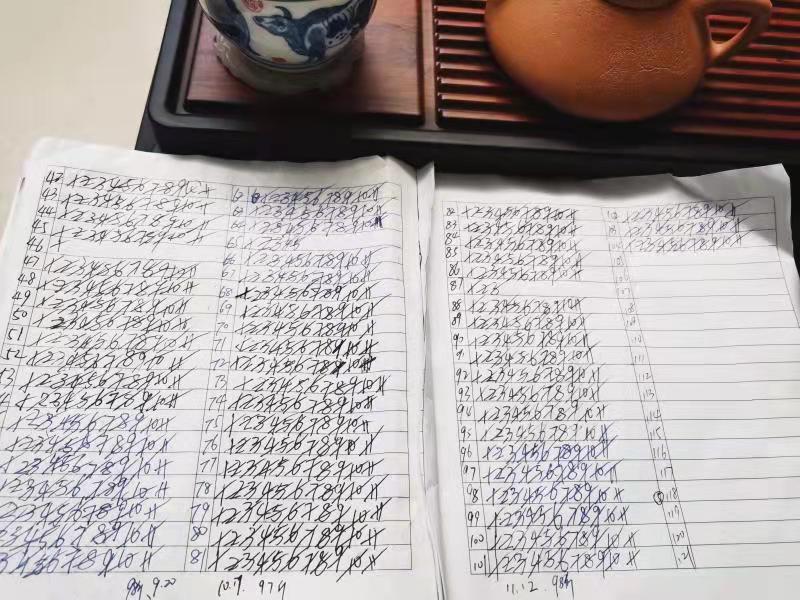 42 1 2 3 4 5 6 7 8 9 10 11
43 1 2 3 4 5 6 7 8 9 10 11
44 1 2 3 4 5 6 7 8 9 10 11
45 1 2 3 4 5 6 7 8 9 10 11
46 1
47 1 2 3 4 5 6 7 8 9 10 11
48 1 2 3 4 5 6 7 8 9 10 11
49 1 2 3 4 5 6 7 8 9 10 11
50 1 2 3 4 5 6 7 8 9 10 11
51 1 2 3 4 5 6 7 8 9 10 11
52 1 2 3 4 5 6 7 8 9 10 11
3 1 2 3 4 5 6 7 8 9 10 11
1 2 3 4 5 6 7 8 9 10 11
1 2 3 4 5 6 7 8 9 10 11
1 2 3 4 5 6 7 8 9 10 11
1 2 3 4 5 6 7 8 9 10 11
2 3 4 5 6 7 8 9 10 11
2 3 4 5 6 7 8 9 10 11
2 3 4 5 6 7 8 9 10 11
3 4 5 6 7 8 9 10 11
62 1 2 3 4 5 6 7 8 9 10 11
63 1 2 3 4 5 6 7 8 9 10 11
64 1 2 3 4 5 6 7 8 9 10 11
65 1 2 3 4 5
66 1 2 3 4 5 6 7 8 9 10 11
67 1 2 3 4 5 6 7 8 9 10 11
68 1 2 3 4 5 6 7 8 9 10 11
69 1 2 3 4 5 6 7 8 9 10 11
70 1 2 3 4 5 6 7 8 9 10 11
71 1 2 3 4 5 6 7 8 9 10 11
72 1 2 3 4 5 6 7 8 9 10 11
73 1 2 3 4 5 6 7 8 9 10 11
74 1 2 3 4 5 6 7 8 9 10 11
75 1 2 3 4 5 6 7 8 9 10 11
76 1 2 3 4 5 6 7 8 9 10 11
77 1 2 3 4 5 6 7 8 9 10 11
78 1 2 3 4 5 6 7 8 9 10 11
79 1 2 3 4 5 6 7 8 9 10 11
80 1 2 3 4 5 6 7 8 9 10 11
81 1 2 3 4 5 6 7 8 9 10 11
98个、9.20
10.7. 97个
82 1 2 3 4 5 6 7 8 9 10 11
83 1 2 3 4 5 6 7 8 9 10 11
84 1 2 3 4 5 6 7 8 9 10 11
85 1 2 3 4 5 6 7 8 9 10 11
86 1 2 3 4 5 6 7 8 9 10 11
87 1 2 3
88 1 2 3 4 5 6 7 8 9 10 11
89 1 2 3 4 5 6 7 8 9 10 11
90 1 2 3 4 5 6 7 8 9 10 11
91 1 2 3 4 5 6 7 8 9 10 11
92 1 2 3 4 5 6 7 8 9 10 11
93 1 2 3 4 5 6 7 8 9 10 11
94 1 2 3 4 5 6 7 8 9 10 11
95 1 2 3 4 5 6 7 8 9 10 11
96 1 2 3 4 5 6 7 8 9 10 11
97 1 2 3 4 5 6 7 8 9 10 11
98 1 2 3 4 5 6 7 8 9 10 11
99 1 2 3 4 5 6 7 8 9 10 11
100 1 2 3 4 5 6 7 8 9 10 11
101 1 2 3 4 5 6 7 8 9 10 11
102 1 2 3 4 5 6 7 8 9 10 11
103 1 2 3 4 5 6 7 8 9 10 11
104 1 2 3 4 5 6 7 8 9 10 11
105
106
107
108
109
110
111
112
113
114
115
116
117
118
119
120
121
11.12. 98个